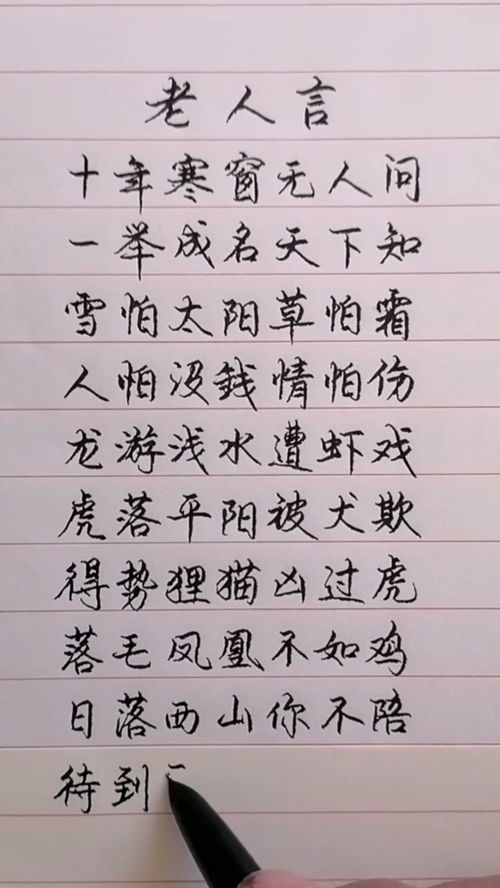 老人言
十年寒窗无人问
一举成名天下知
雪怕太阳草怕霜
人怕没銭情怕伤
龙游浅水遭虾戏
虎落平阳被犬欺
得势狸猫凶过虎
落毛凤凰不如鸡
日落西山你不陪
待到